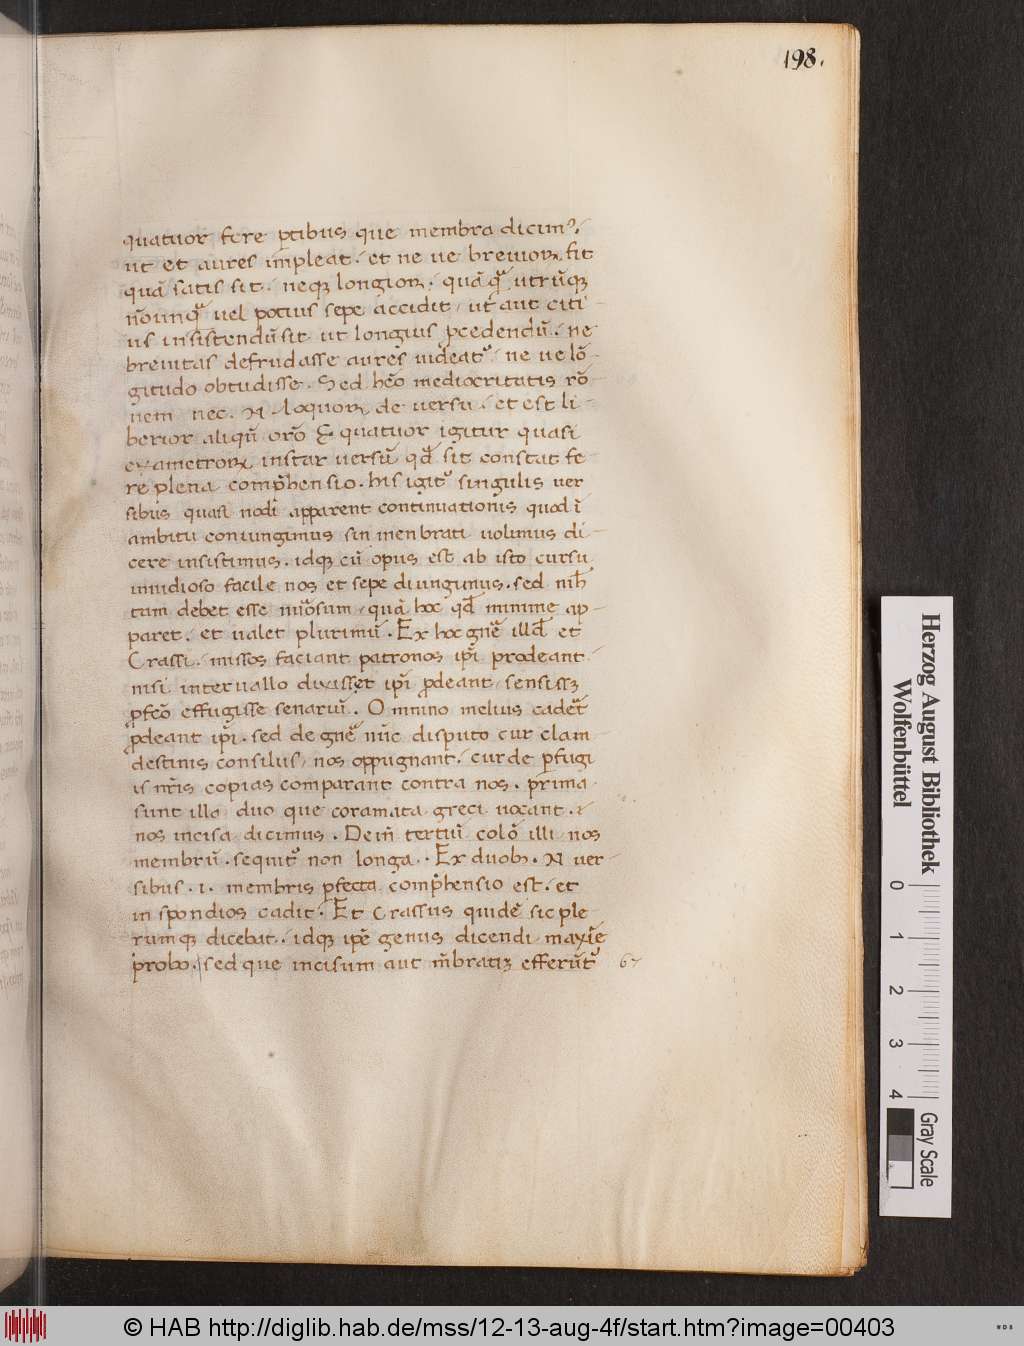 198.
quatuor fere ꝑtibus que membra dicim⁹.
ut et aures impleat. et ne ue breuiorꝝ sit
quā satis sit. neqꝫ longiorꝝ. quāqᷓ utrūqꝫ
nōunqᷓ uel potius sepe accidit, ut aut citi-
us insistendū sit ut longius ꝓcedendū. ne
breuitas defrudasse aures uideat᷑. ne ue lō-
gitudo obtudisse. Sed hēo mediocritatis rō-
nem nec. N. loquorꝝ de uersu. et est li-
berior aliqū orō. E quatuor igitur quasi
exametrorꝝ instar uersū qd̄ sit constat fe-
re plena comp̄hensio. his igit᷑ singulis uer
sibus quasi nodi apparent continuationis quod ī
ambitu coniungimus sin menbrati uolimus di-
cere insistimus. idqꝫ cū opus est ab isto cursu
inuidioso facile nos et sepe diungimus. sed nih̄
tam debet esse nūosum, quā hoc qd̄ minime ap-
paret. et ualet plurimū. Ex hoc gn̄e illd̄ et
Crassi. missos faciant patronos ip̄i prodeant.
nisi interuallo dixisset ip̄i ꝓdeant, sensissꝫ
ꝓfcō effugisse senariū. Omnino melius cadēt᷑
ꝓdeant ip̄i. sed de gn̄e nūc disputo cur clam
destinis consilus, nos oppugnant. cur de ꝑfugi
is nr̄is copias comparant contra nos. prima
sunt illa duo que comata greci uocant.
nos incisa dicimus. Dein̄ tertiū colō illi nos
membrū. sequit᷑ non longa.. Ex duobꝫ. N uer-
sibus. i. membris ꝑfecta comp̄hensio est. et
in spondios cadit. Et Crassus quidē sic ple-
rumqꝫ dicebat. idqꝫ ip̄e genus dicendi maxīe
probo. sed que incisum aut m̄bratiꝫ efferūt᷑
Herzog August Bibliothek
Wolfenbüttel
0 1 2 3 4
Gray Scale
© HAB http://diglib.hab.de/mss/12-13-aug-4f/start.htm?image=00403